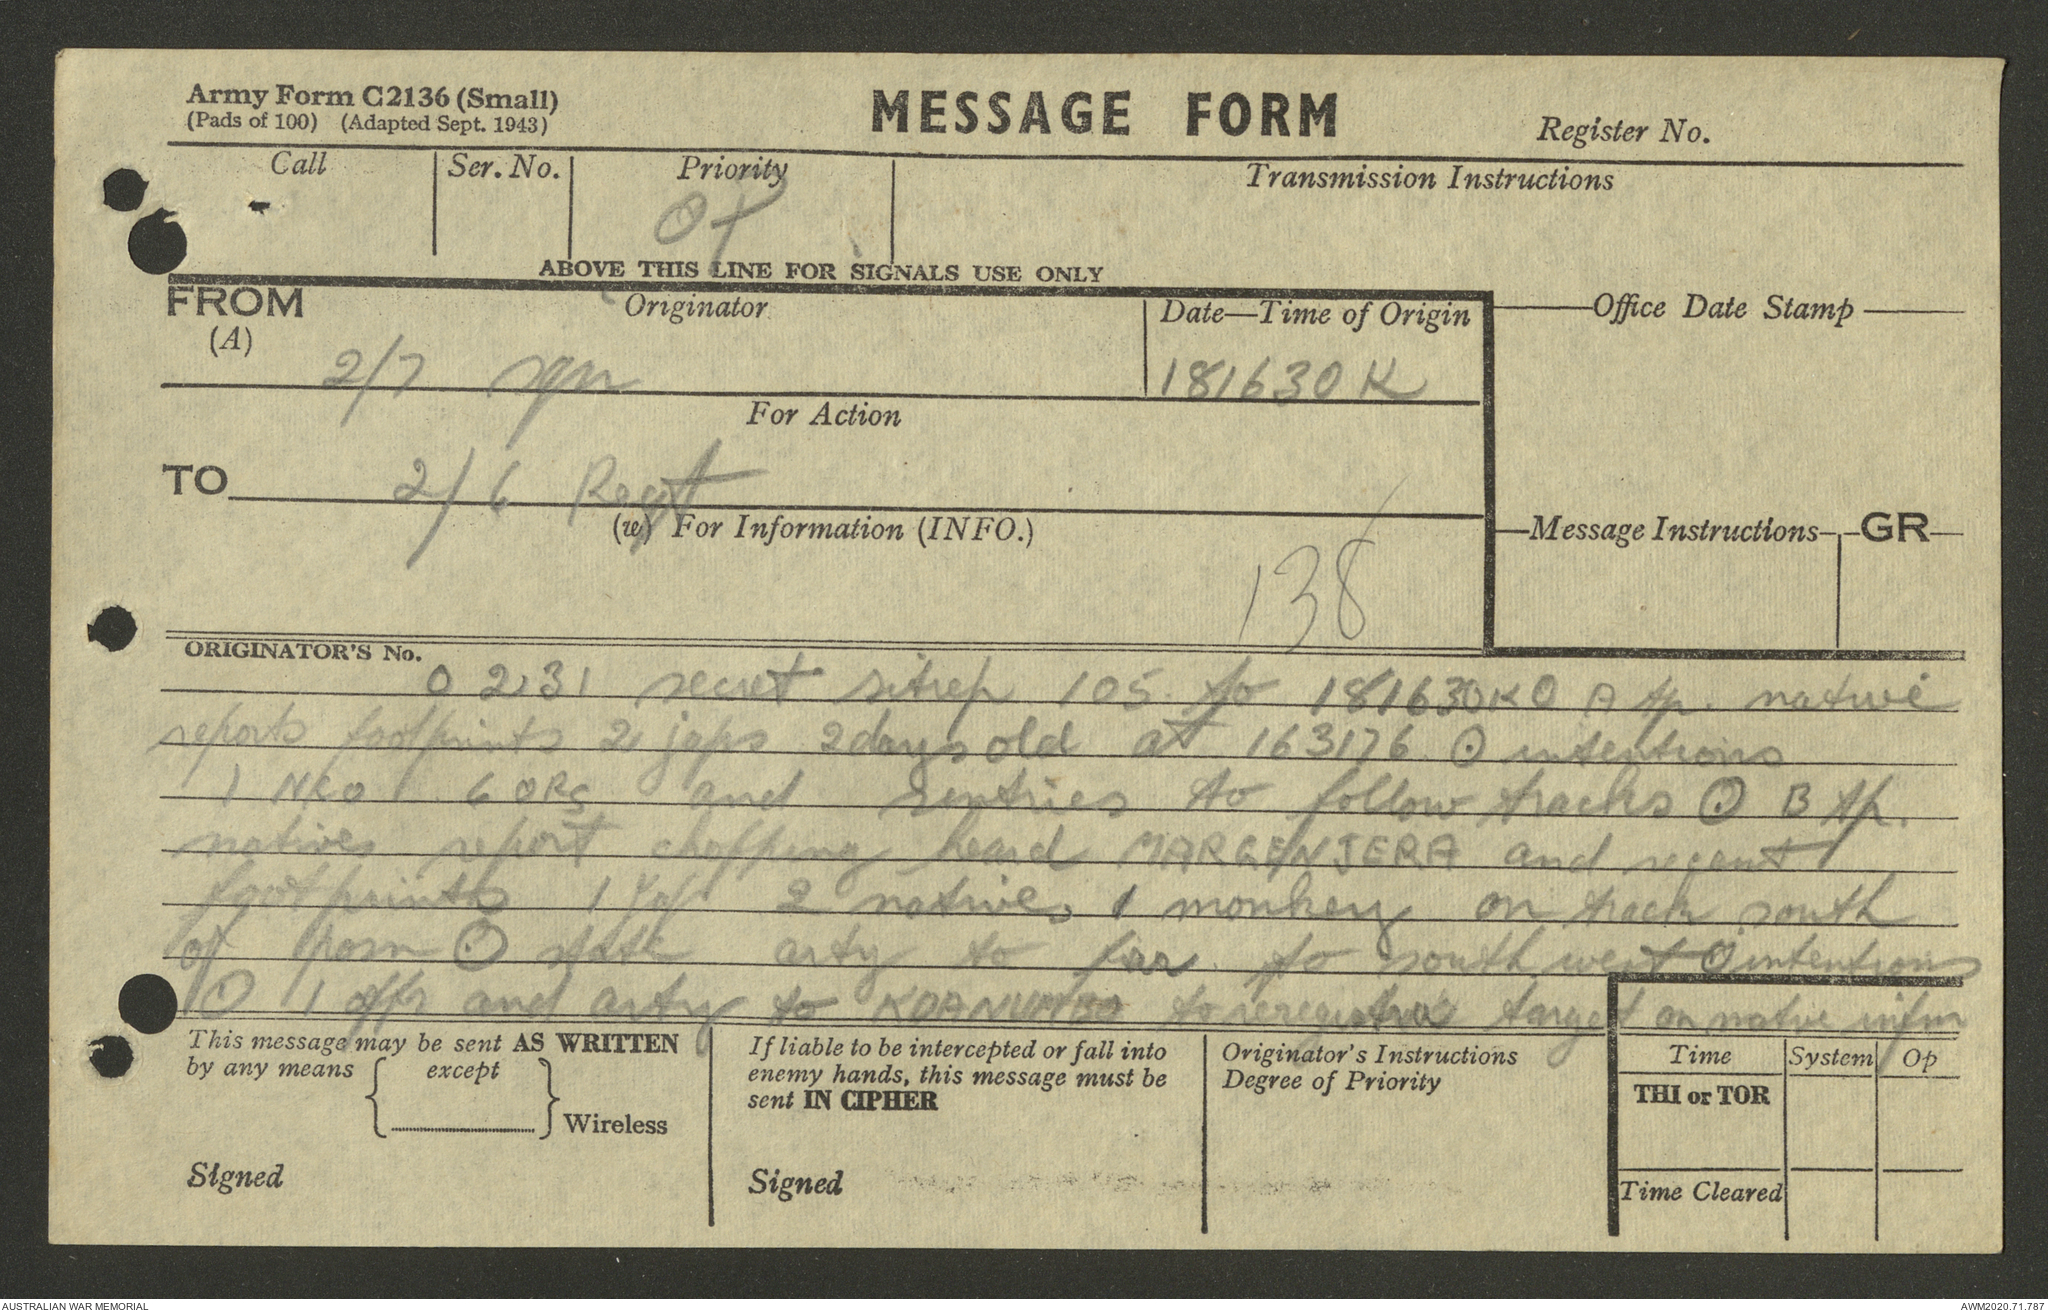 Army Form C2136 (Small)
(Pads of 100) (Adapted Sept. 1943)
MESSAGE FORM
Register No.
Call
Ser. No.
Priority
Transmission Instructions
ABOVE THIS LINE FOR SIGNALS USE ONLY
FROM
(A)
Originator
Date—Time of Origin
Office Date Stamp
2/7 sqn
181630 K
For Action
TO
2/6 Regt
(w) For Information (INFO.)
Message Instructions
GR
138
ORIGINATOR'S No.
O 231 secret sitrep 105 to 181630K O A tp. native
reports footprints 2 japs 2 days old at 163176 O intentions
1 NCO 6 ORS and sentries to follow tracks O B tp.
natives report chopping heard and recent
footprints 1 Jap 2 natives 1 monkey on track south
of posn O arty to far to south west O intentions
O 1 offr and arty to to reregister target on native infm
This message may be sent AS WRITTEN
by any means except
Wireless
Signed
If liable to be intercepted or fall into
enemy hands, this message must be
sent IN CIPHER
Signed
Originator's Instructions
Degree of Priority
Time
System
Op
THI or TOR
Time Cleared
AUSTRALIAN WAR MEMORIAL
AWM2020.71.787